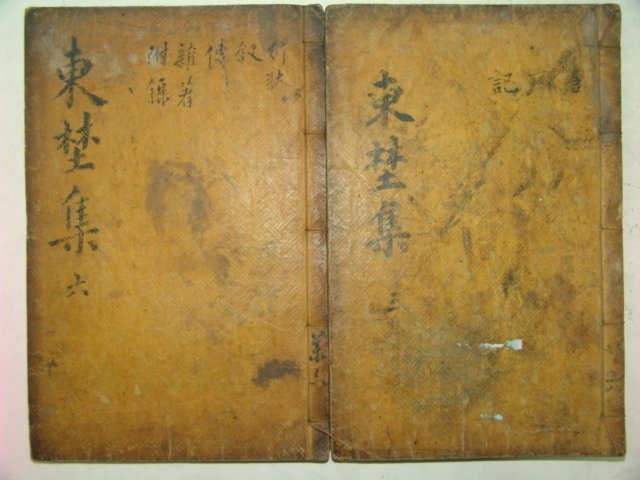 東埜集 六
行狀
叙
傳
雜著
附錄
東埜集 三
記